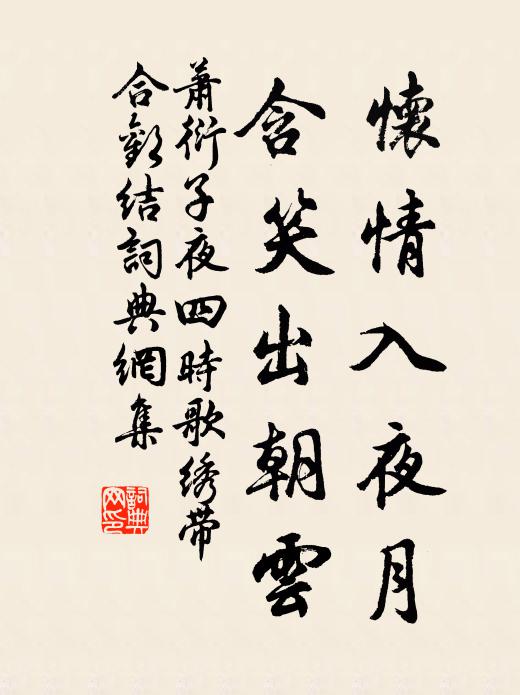 懷情入夜月
含笑出朝雲
蕭衍子夜四時歌绣带
合歡结詞典網集
詞典
网印